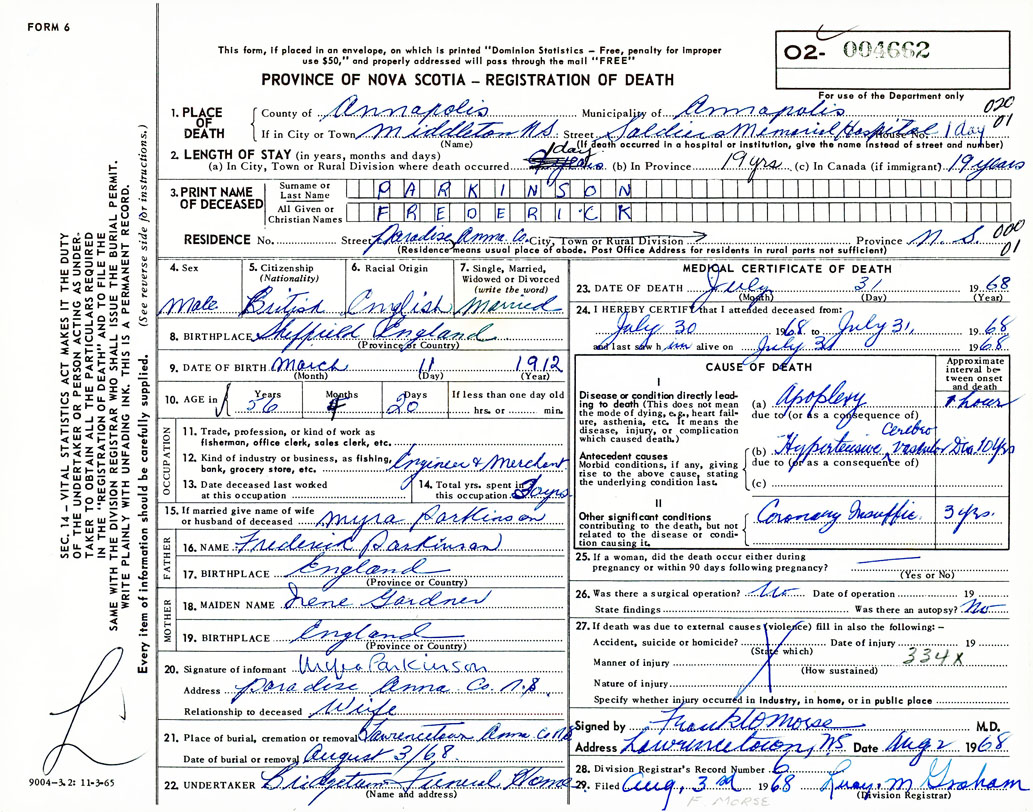 FORM 6
This form, if placed in an envelope, on which is printed "Dominion Statistics – Free, penalty for improper
use $50," and properly addressed will pass through the mail "FREE"
PROVINCE OF NOVA SCOTIA – REGISTRATION OF DEATH
O2- 004662
For use of the Department only
020
01
1. PLACE OF DEATH
County of Annapolis Municipality of Annapolis
If in City or Town Middleton N.S. Street Soldiers Memorial Hospital 1 day
(Name) (If death occurred in a hospital or institution, give the name instead of street and number)
2. LENGTH OF STAY (in years, months and days)
(a) In City, Town or Rural Division where death occurred 1 day (b) In Province 19 yrs. (c) In Canada (if immigrant) 19 years
3. PRINT NAME OF DECEASED
Surname or Last Name PARKINSON
All Given or Christian Names FREDERICK
RESIDENCE No. Street Paradise Anna. Co. City, Town or Rural Division Province N.S. 000
01
(Residence means usual place of abode. Post Office Address for residents in rural parts not sufficient)
4. Sex Male
5. Citizenship (Nationality) British
6. Racial Origin English
7. Single, Married, Widowed or Divorced (write the word) Married
8. BIRTHPLACE Sheffield England
(Province or Country)
9. DATE OF BIRTH March 11 1912
(Month) (Day) (Year)
10. AGE in Years 56 Months 4 Days 20 If less than one day old hrs. or min.
OCCUPATION
11. Trade, profession or kind of work as fisherman, office clerk, sales clerk, etc.
12. Kind of industry or business, as fishing, bank, grocery store, etc. Engineer & Merchant
13. Date deceased last worked at this occupation
14. Total yrs. spent in this occupation
15. If married give name of wife or husband of deceased Myra Parkinson
FATHER
16. NAME Frederick Parkinson
17. BIRTHPLACE England
(Province or Country)
MOTHER
18. MAIDEN NAME Irene Gardner
19. BIRTHPLACE England
(Province or Country)
20. Signature of informant Myra Parkinson
Address Paradise Anna Co. N.S.
Relationship to deceased Wife
21. Place of burial, cremation or removal Lawrencetown Anna Co N.S.
Date of burial or removal August 3/68.
22. UNDERTAKER Bridgetown Funeral Home
(Name and address)
MEDICAL CERTIFICATE OF DEATH
23. DATE OF DEATH July 31 1968
(Month) (Day) (Year)
24. I HEREBY CERTIFY that I attended deceased from:
July 30 1968 to July 31, 1968
and last saw him alive on July 31 1968
CAUSE OF DEATH
Approximate interval between onset and death
I
Disease or condition directly leading to death (This does not mean the mode of dying, e.g., heart failure, asthenia, etc. It means the disease, injury, or complication which caused death.)
(a) Apoplexy 1 hour
due to (or as a consequence of)
Antecedent causes
Morbid conditions, if any, giving rise to the above cause, stating the underlying condition last.
(b) Hypertensive Cerebro Vascular Dis. 10 yrs
due to (or as a consequence of)
(c)
II
Other significant conditions contributing to the death, but not related to the disease or condition causing it.
Coronary Insuffic. 3 yrs.
25. If a woman, did the death occur either during pregnancy or within 90 days following pregnancy?
(Yes or No)
26. Was there a surgical operation? No Date of operation 19
State findings Was there an autopsy? No
27. If death was due to external causes (violence) fill in also the following: –
Accident, suicide or homicide? Date of injury 19
(State which)
Manner of injury 334X
(How sustained)
Nature of injury
Specify whether injury occurred in industry, in home, or in public place
Signed by Frank O Morse M.D.
Address Lawrencetown, N.S. Date Aug 2 1968
28. Division Registrar's Record Number 6
29. Filed Aug. 3rd 1968 M Graham
(Division Registrar)
F. MORSE
SEC. 14 – VITAL STATISTICS ACT MAKES IT THE DUTY
OF THE UNDERTAKER OR PERSON ACTING AS UNDER-
TAKER TO OBTAIN ALL THE PARTICULARS REQUIRED
IN THE "REGISTRATION OF DEATH" AND TO FILE THE
SAME WITH THE DIVISION REGISTRAR WHO SHALL ISSUE THE BURIAL PERMIT.
WRITE PLAINLY WITH UNFADING INK. THIS IS A PERMANENT RECORD.
Every item of information should be carefully supplied. (See reverse side for instructions.)
9004-3.2: 11-3-65